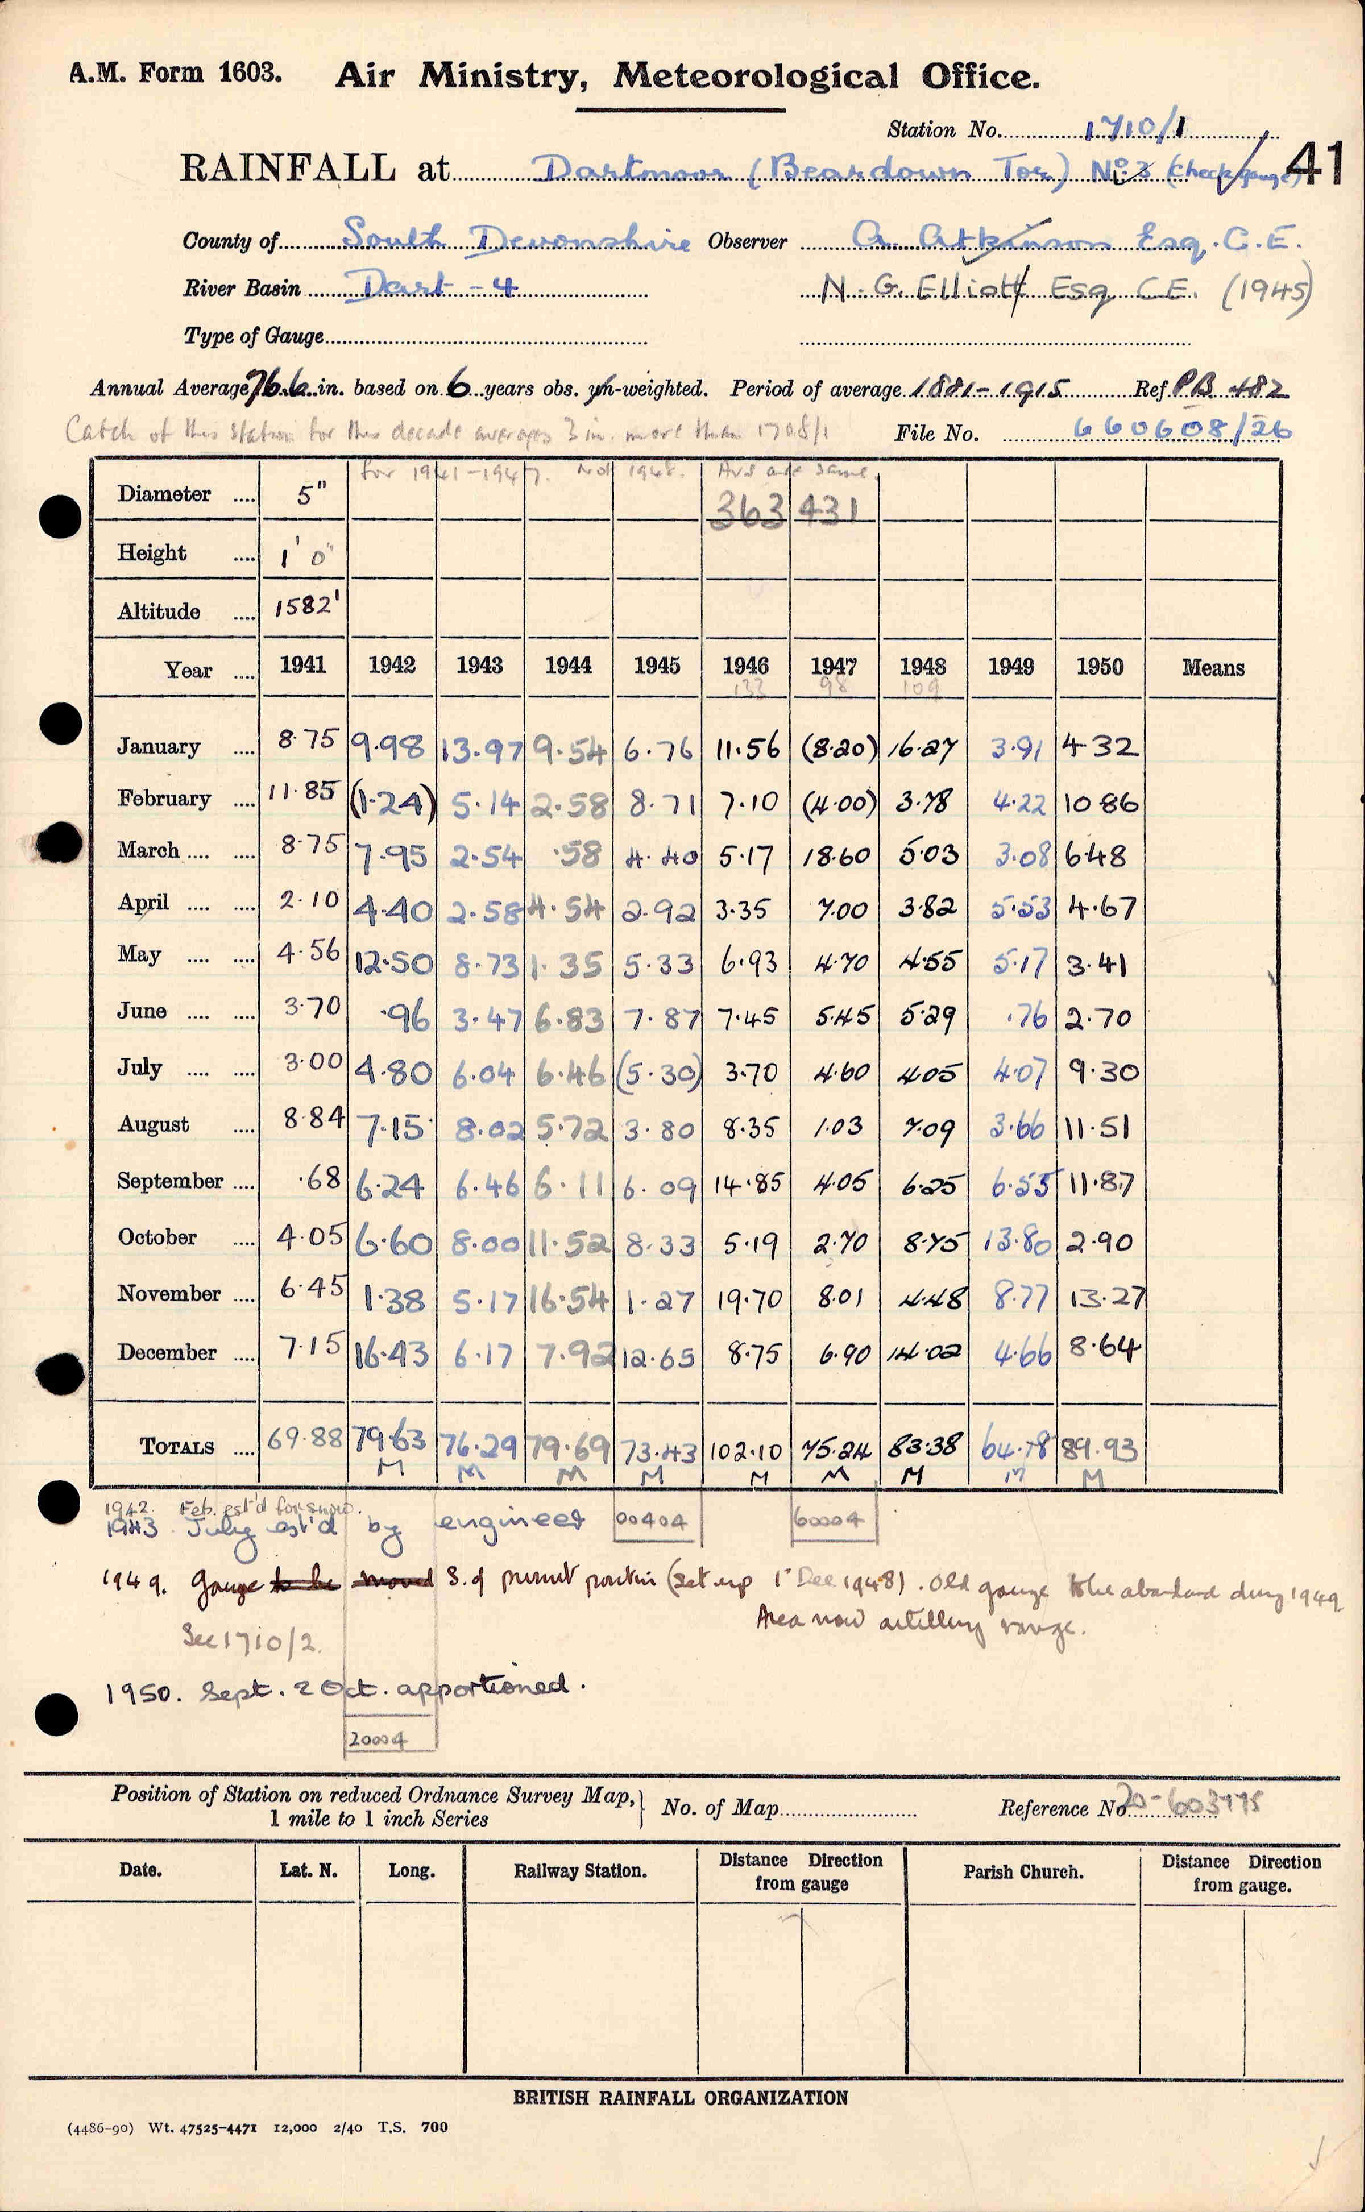 A.M. Form 1603. Air Ministry, Meteorological Office.
Station No. 1710/1
RAINFALL at Dartmoor (Beardown Tor) No. 3 (Check gauge) 41
County of South Devonshire Observer A. Atkinson Esq. C.E.
River Basin Dart - 4 N. G. Elliott Esq C.E. (1945)
Type of Gauge
Annual Average 76.6 in. based on 6 years obs. un-weighted. Period of average 1881-1915 Ref PB 482
Catch of this station for this decade averages 3 in. more than 1708/1 File No. 660608/26
for 1941-1947. Not 1948. Avs are same.
Diameter .... 5" 363 431
Height .... 1' 0"
Altitude .... 1582'
Year .... 1941 1942 1943 1944 1945 1946 1947 1948 1949 1950 Means
133 98 109
January .... 8.75 9.98 13.97 9.54 6.76 11.56 (8.20) 16.27 3.91 4.32
February .... 11.85 (1.24) 5.14 2.58 8.71 7.10 (4.00) 3.78 4.22 10.86
March .... .... 8.75 7.95 2.54 .58 4.40 5.17 18.60 5.03 3.08 6.48
April .... .... 2.10 4.40 2.58 4.54 2.92 3.35 7.00 3.82 5.53 4.67
May .... .... 4.56 12.50 8.73 1.35 5.33 6.93 4.70 4.55 5.17 3.41
June .... .... 3.70 .96 3.47 6.83 7.87 7.45 5.45 5.29 .76 2.70
July .... .... 3.00 4.80 6.04 6.46 (5.30) 3.70 4.60 4.05 4.07 9.30
August .... 8.84 7.15 8.02 5.72 3.80 8.35 1.03 7.09 3.66 11.51
September .... .68 6.24 6.46 6.11 6.09 14.85 4.05 6.25 6.55 11.87
October .... 4.05 6.60 8.00 11.52 8.33 5.19 2.70 8.75 13.80 2.90
November .... 6.45 1.38 5.17 16.54 1.27 19.70 8.01 4.48 8.77 13.27
December .... 7.15 16.43 6.17 7.92 12.65 8.75 6.90 14.02 4.66 8.64
TOTALS .... 69.88 79.63 76.29 79.69 73.43 102.10 75.24 83.38 64.78 89.93
M M M M M M M M M
1942. Feb. est'd for snow.
1943 July est'd by engineer 00404 60004
1949. Gauge to be moved S. of present position (set up 1st Dec 1948). Old gauge to be abandoned during 1949
Area now artillery range.
See 1710/2.
1950. Sept. & Oct. apportioned.
20004
Position of Station on reduced Ordnance Survey Map, 1 mile to 1 inch Series } No. of Map Reference No. 20-603775
Date. Lat. N. Long. Railway Station. Distance Direction from gauge Parish Church. Distance Direction from gauge.
BRITISH RAINFALL ORGANIZATION
(4486-90) Wt. 47525-4471 12,000 2/40 T.S. 700